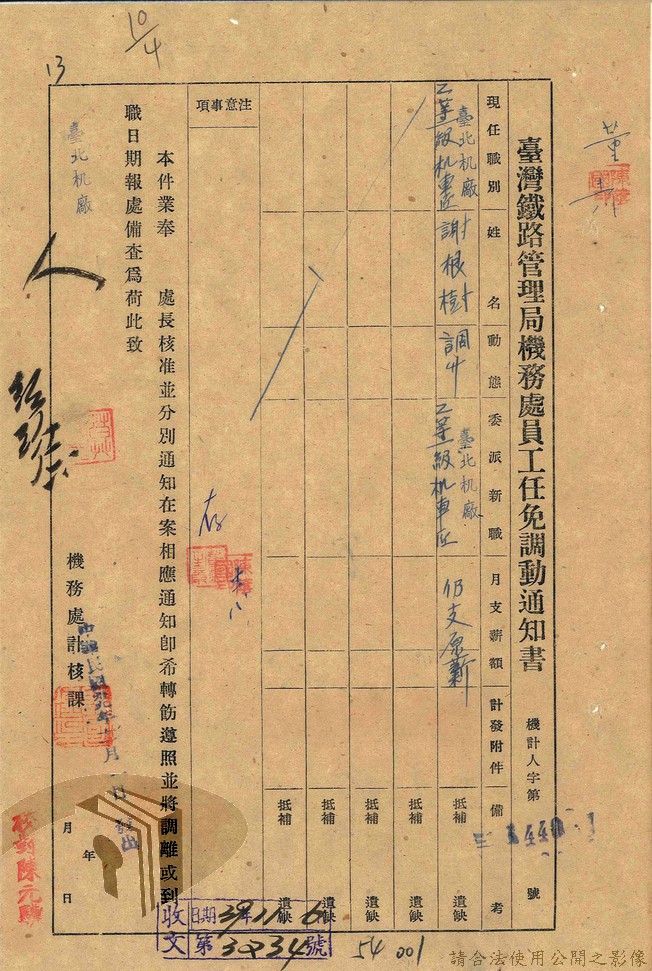 臺灣鐵路管理局機務處員工任免調動通知書
機計人字第 號
現任職別
姓名
動態
委派新職
月支薪額
計發附件
備考
臺北机廠
乙等級机車匠
謝根樹
調升
臺北机廠
乙等級机車匠
仍支原薪
抵補 遺缺
抵補 遺缺
抵補 遺缺
抵補 遺缺
抵補 遺缺
注意事項
存
本件業奉 處長核准並分別通知在案相應通知卽希轉飭遵照並將調離或到
職日期報處備查爲荷此致
臺北机廠
機務處計核課
年 月 日
中華民國 年 月 日 發出
校對陳元
收文
日期 39年11.6
第3034號
54 001
10/4
13
人
董
請合法使用公開之影像